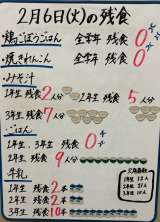 2月6日(火)の残食
・鶏ごぼうごはん 全学年 残食 0
・焼きれんこん 全学年 残食 0
・みそ汁
1年生 残食 2人分 2年生 残食 5人分
3年生 残食 7人分
・ごはん
1年生、3年生 残食 0
2年生 残食 9人分
・牛乳
1年生 残食 2本
2年生 残食 2本
3年生 残食 10本
欠席者数